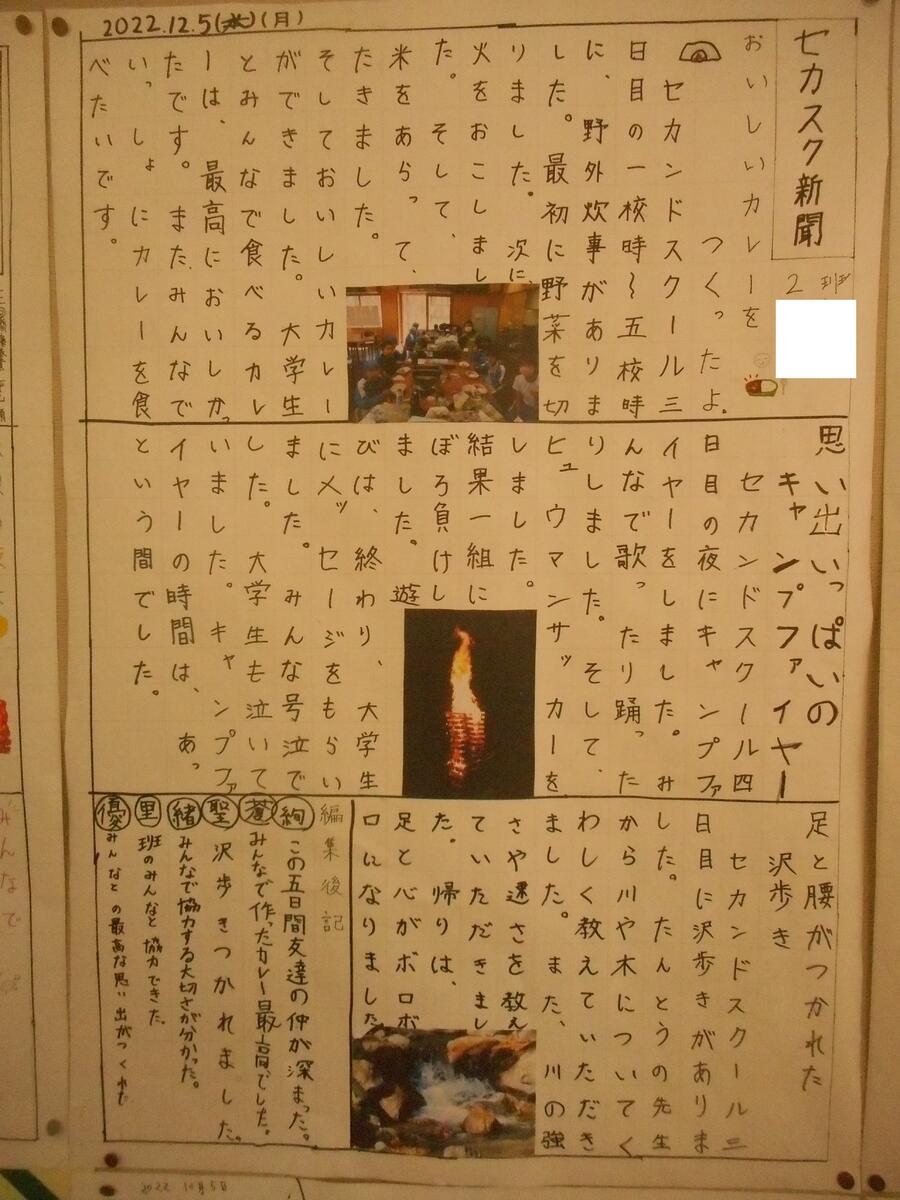 2022.12.5(水)(月)
セカスク新聞
2班
おいしいカレーを
つくったよ。
セカンドスクール三
日目の一校時〜五校時
に、野外炊事がありま
した。最初に野菜を切
りました。次に、
火をおこしまし
た。そして、
米をあらって、
たきました。
そしておいしいカレー
ができました。大学生
とみんなで食べるカレ
ーは、最高においしかっ
たです。またみんなで
いっしょにカレーを食
べたいです。
思い出いっぱいの
キャンプファイヤー
セカンドスクール四
日目の夜にキャンプファ
イヤーをしました。み
んなで歌ったり踊った
りしました。そして、
ヒュウマンサッカーを
しました。
結果一組に
ぼろ負けし
ました。遊
びは、終わり、大学生
にメッセージをもらい
ました。みんな号泣で
した。大学生も泣いて
いました。キャンプファ
イヤーの時間は、あっ
という間でした。
足と腰がつかれた
沢歩き
セカンドスクール三
日目に沢歩きがありま
した。たんとうの先生
から川や木についてく
わしく教えていただき
ました。また、川の強
さや速さを教え
ていただきまし
た。帰りは、
足と心がボロボ
ロになりました
編集後記
絢 この五日間友達の仲が深まった。
蒼 みんなで作ったカレー最高でした。
聖 沢歩きつかれました。
緒 みんなで協力する大切さが分かった。
里 班のみんなと協力できた。
優 みんなとの最高な思い出がつくれた
みんなで
2022 10月5日